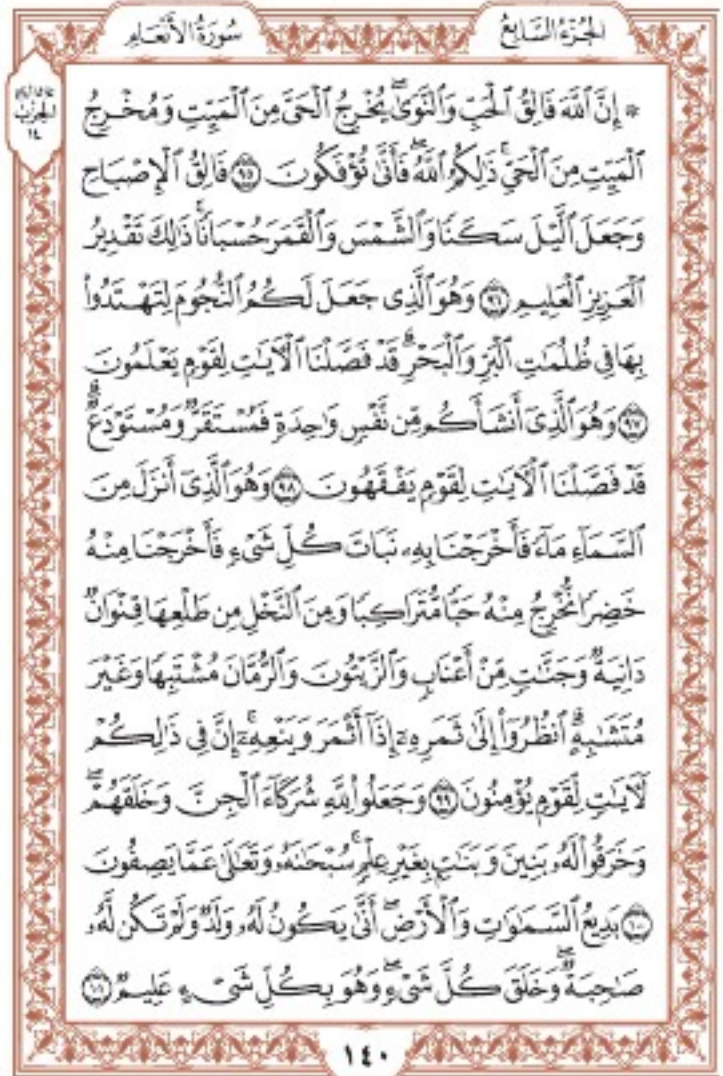 سُورَةُ الأَنْعَام
الجُزْءُ السَّابِعُ
الحِزْبِ
١٤
۞ إِنَّ ٱللَّهَ فَالِقُ ٱلْحَبِّ وَٱلنَّوَىٰۖ يُخْرِجُ ٱلْحَىَّ مِنَ ٱلْمَيِّتِ وَمُخْرِجُ
ٱلْمَيِّتِ مِنَ ٱلْحَىِّۚ ذَٰلِكُمُ ٱللَّهُۖ فَأَنَّىٰ تُؤْفَكُونَ ٩٥ فَالِقُ ٱلْإِصْبَاحِ
وَجَعَلَ ٱلَّيْلَ سَكَنًا وَٱلشَّمْسَ وَٱلْقَمَرَ حُسْبَانًاۚ ذَٰلِكَ تَقْدِيرُ
ٱلْعَزِيزِ ٱلْعَلِيمِ ٩٦ وَهُوَ ٱلَّذِى جَعَلَ لَكُمُ ٱلنُّجُومَ لِتَهْتَدُوا۟
بِهَا فِى ظُلُمَٰتِ ٱلْبَرِّ وَٱلْبَحْرِۗ قَدْ فَصَّلْنَا ٱلْءَايَٰتِ لِقَوْمٍ يَعْلَمُونَ
٩٧ وَهُوَ ٱلَّذِىٓ أَنشَأَكُم مِّن نَّفْسٍ وَٰحِدَةٍ فَمُسْتَقَرٌّ وَمُسْتَوْدَعٌۗ
قَدْ فَصَّلْنَا ٱلْءَايَٰتِ لِقَوْمٍ يَفْقَهُونَ ٩٨ وَهُوَ ٱلَّذِىٓ أَنزَلَ مِنَ
ٱلسَّمَآءِ مَآءً فَأَخْرَجْنَا بِهِۦ نَبَاتَ كُلِّ شَىْءٍ فَأَخْرَجْنَا مِنْهُ
خَضِرًا نُّخْرِجُ مِنْهُ حَبًّا مُّتَرَاكِبًا وَمِنَ ٱلنَّخْلِ مِن طَلْعِهَا قِنْوَانٌ
دَانِيَةٌ وَجَنَّٰتٍ مِّنْ أَعْنَابٍ وَٱلزَّيْتُونَ وَٱلرُّمَّانَ مُشْتَبِهًا وَغَيْرَ
مُتَشَٰبِهٍۗ ٱنظُرُوٓا۟ إِلَىٰ ثَمَرِهِۦٓ إِذَآ أَثْمَرَ وَيَنْعِهِۦٓۚ إِنَّ فِى ذَٰلِكُمْ
لَءَايَٰتٍ لِّقَوْمٍ يُؤْمِنُونَ ٩٩ وَجَعَلُوا۟ لِلَّهِ شُرَكَآءَ ٱلْجِنَّ وَخَلَقَهُمْۖ
وَخَرَقُوا۟ لَهُۥ بَنِينَ وَبَنَٰتٍۭ بِغَيْرِ عِلْمٍۚ سُبْحَٰنَهُۥ وَتَعَٰلَىٰ عَمَّا يَصِفُونَ
١٠٠ بَدِيعُ ٱلسَّمَٰوَٰتِ وَٱلْأَرْضِۖ أَنَّىٰ يَكُونُ لَهُۥ وَلَدٌ وَلَمْ تَكُن لَّهُۥ
صَٰحِبَةٌۖ وَخَلَقَ كُلَّ شَىْءٍۖ وَهُوَ بِكُلِّ شَىْءٍ عَلِيمٌ ١٠١
١٤٠